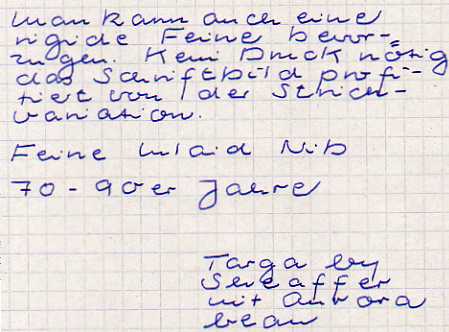 man kann auch eine
rigide Feine bevor-
zugen. Kein Druck nötig
das Schriftbild profi-
tiert von der Strich-
variation.
Feine Inlaid Nib
70-90er Jahre
Targa by
Sheaffer
mit Aurora